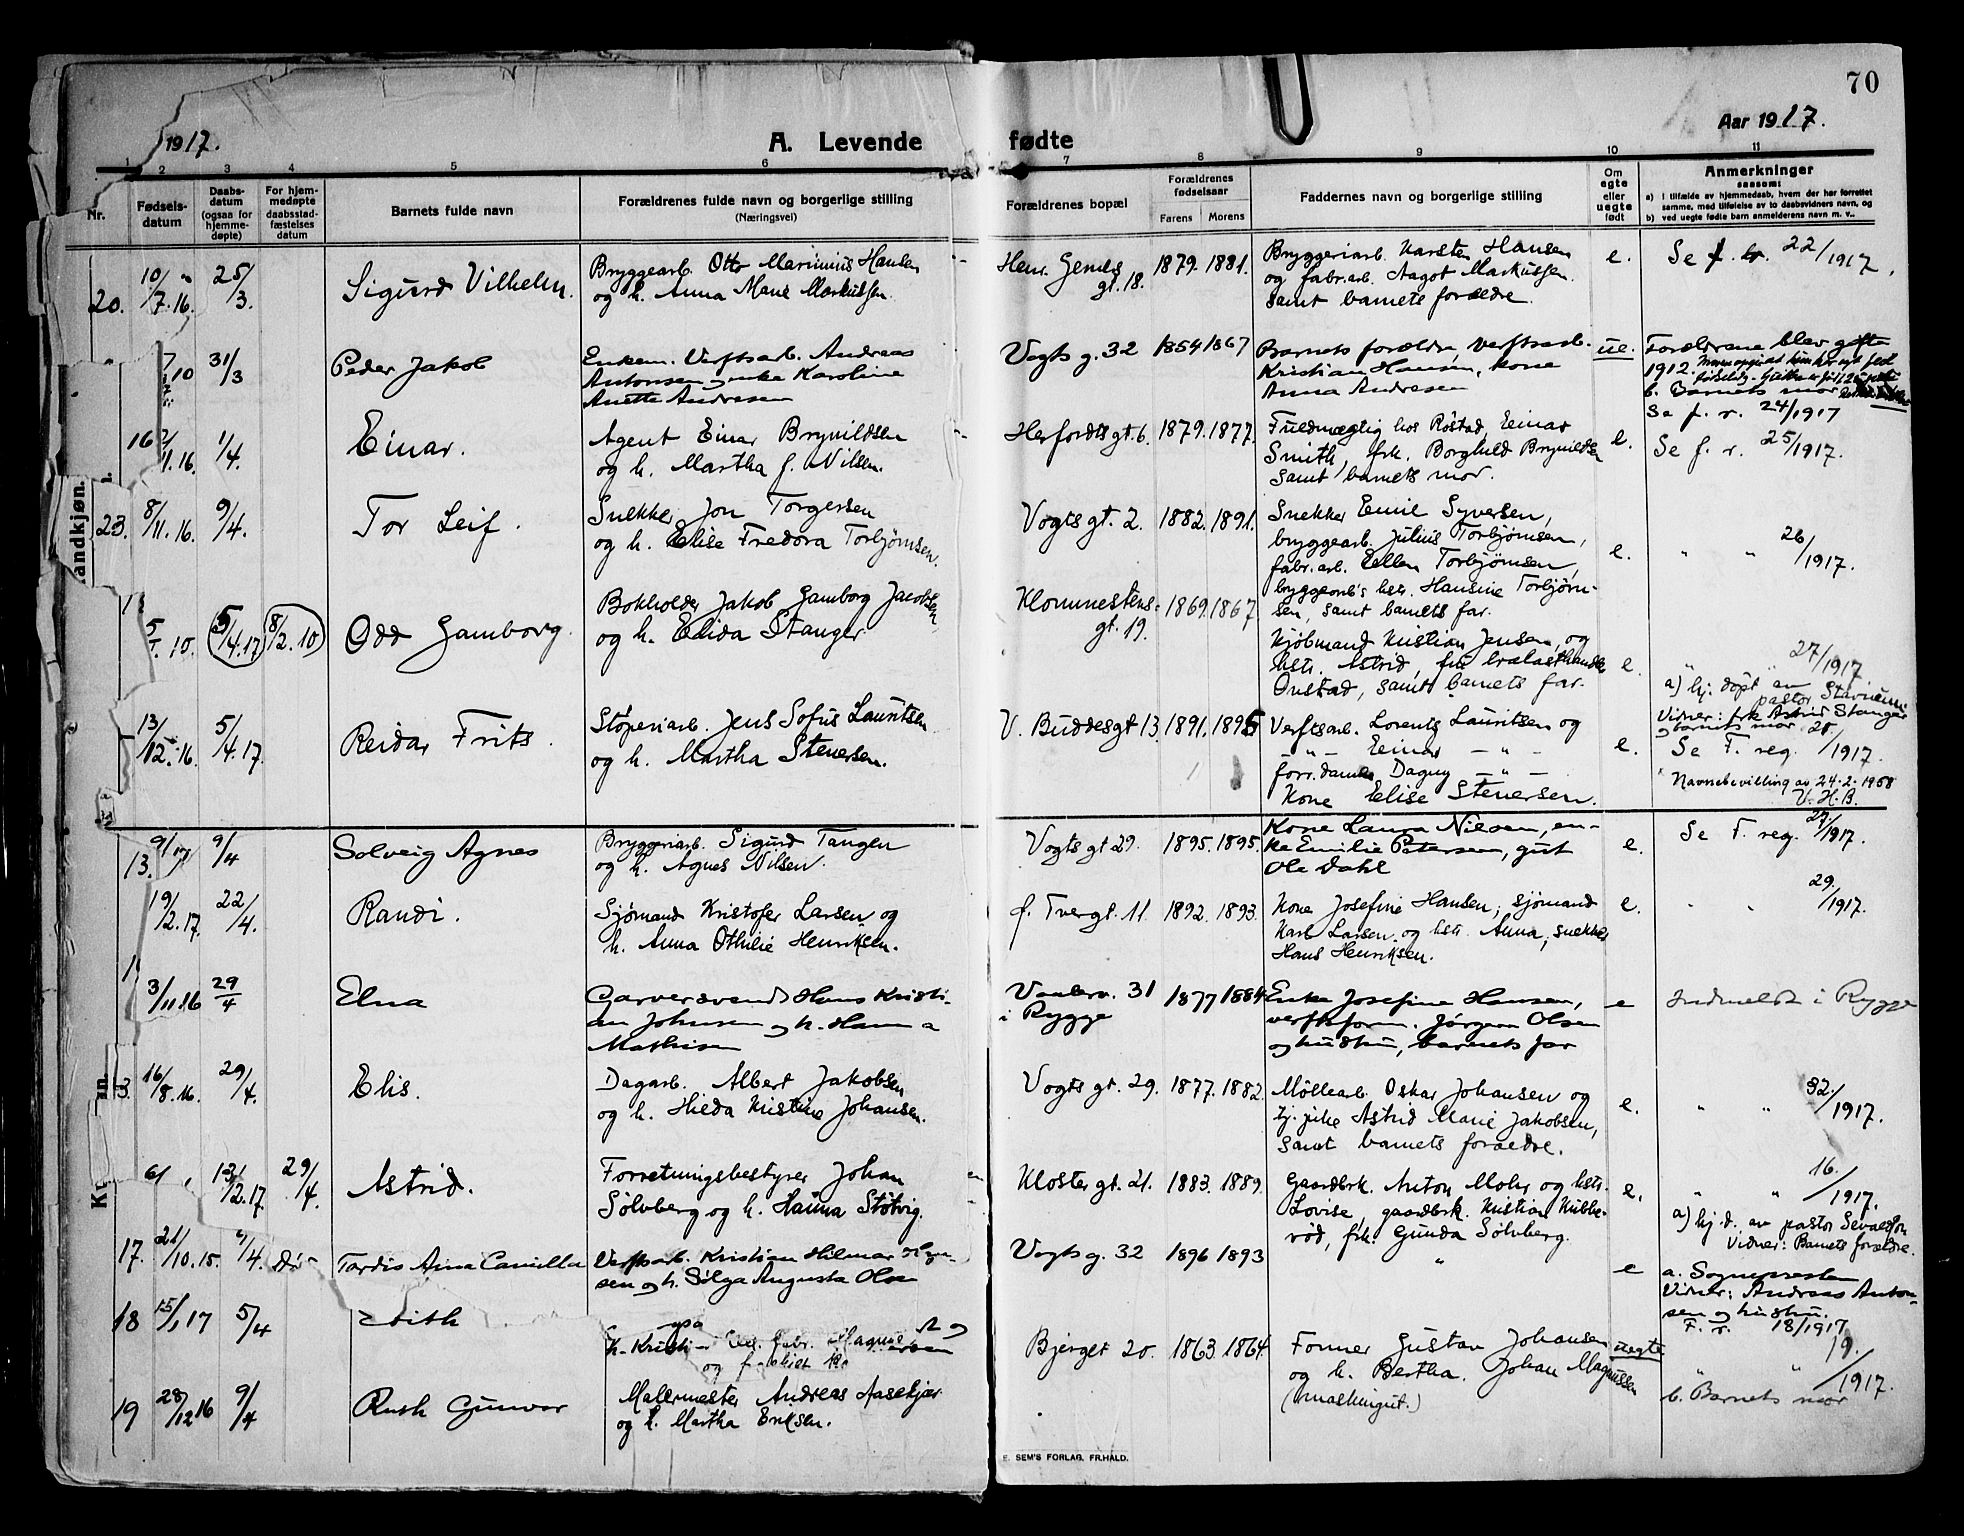 70
1917.
A. Levende fødte
Aar 1917.
1 2 3 4 5 6 7 8 9 10 11
Nr.
Fødsels-
datum
Daabs-
datum
(ogsaa for
hjemme-
døpte)
For hjem-
medøpte
daabsstad-
fæstelses
datum
Barnets fulde navn
Forældrenes fulde navn og borgerlige stilling
(Næringsvei)
Forældrenes bopæl
Forældrenes
fødselsaar
Farens Morens
Faddernes navn og borgerlige stilling
Om
egte
eller
uegte
født
Anmerkninger
saasom:
a) i tilfælde av hjemmedaab, hvem der har forrettet
samme, med tilføielse av to daabsvidners navn, og
b) ved uegte fødte barn anmelderens navn m. v..
andkjøn.
20. 10/7.16. 25/3. Sigurd Vilhelm.
Bryggearb. Otto Marinius Hansen
og h. Anna Marie Markussen.
Henr. Gerners
gt. 18.
1879. 1881.
Bryggeriarb. Karsten Hansen
og fabr.arb. Aagot Markussen
samt barnets forældre.
e.
Se f. r. 22/1917.
10 31/3 Peder Jakob
Enkem. Verftsarb. Andreas
Antonsen og enke Karoline
Anette Andresen
Vogts g. 32 1854 1867
Barnets forældre, verftsarb.
Kristian Hansen, kone
Anna Andresen
ue.
Forældrene blev gifte
1912.
b. Barnets mor
Se f. r. 24/1917
16 /11.16. 1/4. Einar.
Agent Einar Brynildsen
og h. Martha f. Nilsen.
Herfordts gt. 6. 1879. 1877.
Fuldmægtig hos Røstad, Einar
Smith, frk. Borghild Brynildsen
samt barnets mor.
e.
Se f. r. 25/1917.
23. 8/11.16. 9/4. Tor Leif.
Snekker Jon Torgersen
og h. Elise Fredora Torbjørnsen.
Vogts gt. 2. 1882. 1891.
Snekker Emil Syversen,
bryggearb. Julius Torbjørnsen,
fabr.arb. Ellen Torbjørnsen,
bryggearb's hstr. Hansine Torbjørn-
sen, samt barnets far.
e.
" " 26/1917.
5/.10. 5/4.17 8/2.10 Odd Gamborg.
Bokholder Jakob Gamborg Jacobsen,
og h. Elida Stanger.
Klommestens-
gt. 19.
1869. 1867
Kjøbmand Kristian Jensen, og
hstr. Astrid, fru trælasthandler
Onstad, samt barnets far.
e.
" " 27/1917
a) hj. døpt av
pastor Stavnum.
Vidner: frk. Astrid Stanger
og barnets mor.
13/12.16. 5/4.17. Reidar Frits.
Støperiarb. Jens Sofus Lauritsen
og h. Martha Stenersen.
V. Buddesgt 13. 1891. 1895
Verftsarb. Lorents Lauritsen og
- " - Einar - " -
forr.damen Dagny - " -
Kone Elise Stenersen.
e.
Se F. reg. 20/1917.
Navnebevilling av 24-2-1958
V. H. B.
13. 9/1 17 9/4 Solveig Agnes
Bryggeriarb. Sigurd Tangen
og h. Agnes Nilsen.
Vogts gt 29. 1895. 1895.
Kone Laura Nilsen, en-
ke Emilie Petersen, gut
Ole Dahl
e.
Se F. reg. 27/1917.
19/2.17. 22/4. Randi.
Sjømand Kristofer Larsen og
h. Anna Othilie Henriksen.
f. Tvergt. 11. 1892. 1893.
Kone Josefine Hansen; sjømand
Karl Larsen og hstr. Anna; snekker
Hans Henriksen.
e.
" " 29./1917.
3/11 16 29/4 Elna
Garversvend Hans Kristi-
an Johnsen og h. Hanna
Mathisen
Vanlerv. 31
i Rygge
1877 1884
Enke Josefine Hansen,
verftsform. Jørgen Olsen
og hustru, barnets far
e
Indmeldt i Rygge
3. 16/8.16. 29/4. Elis.
Dagarb. Albert Jakobsen
og h. Hilda Kristine Johansen.
Vogts gt. 29. 1877. 1882.
Møllearb. Oskar Johansen og
tj.pike Astrid Marie Jakobsen,
samt barnets forældre.
e.
" " 32/1917.
13/2.17 29/4. Astrid.
Forretningsbestyrer Johan
Sølvberg og h. Hanna Støtvig.
Kloster gt. 21. 1883. 1889.
Gaardbrk. Anton Mohr og hstr.
Lovise, gaardbrk. Kristian Kubbe-
rød, frk. Gunda Sølvberg.
e.
" " 16./1917.
a) hj.d. av pastor Sevaldson
Vidner: Barnets forældre.
17. 21/10.15. /4. Tordis Aina Camilla
Verftsarb. Kristian Hilmar
sen og h. Sølga Augusta Olsen
Vogts g. 32 1896 1893
"
e
a. Sognepresten
Vidner: Andreas Anton-
sen og hustru.
F. r. 18/1917
18 15/1 17 5/4 Edith
h. Kristi
fabr. Magnus
og
Bjerget 20. 1863. 1864.
Former Gustav Johansen
og h. Bertha. Johan Magnussen
(maskingut.)
uegte
" " 19./1917.
b. Barnets mor
19 28/12 16 9/4 Ruth Gunvor
Malermester Andreas Aasekjær
og h. Martha Eriksen.
E. SEM'S FORLAG. FR.HALD.